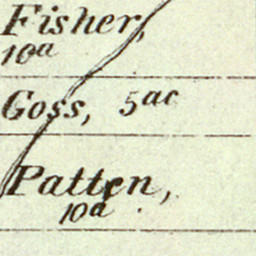 Fisher,
10a
Goss, 5ac
Patten,
10a